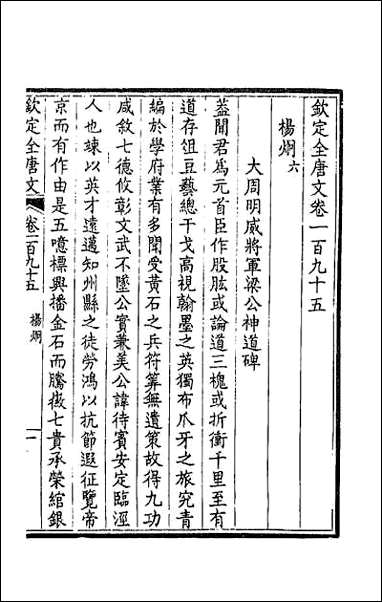 欽定全唐文卷一百九十五
楊炯六
大周明威將軍梁公神道碑
葢聞君爲元首臣作股肱或論道三槐或折衝千里至有
道存俎豆藝總干戈高視翰墨之英獨布爪牙之旅究青
編於學府業有多聞受黃石之兵符筭無遺策故得九功
咸敘七德攸彰文武不墜公實兼美公諱待賓安定臨涇
人也竦以英才遠邁知州縣之徒勞鴻以抗節遐征覽帝
京而有作由是五噫標興播金石而騰徽七貴承榮綰銀
欽定全唐文
卷一百九十五
楊炯
一